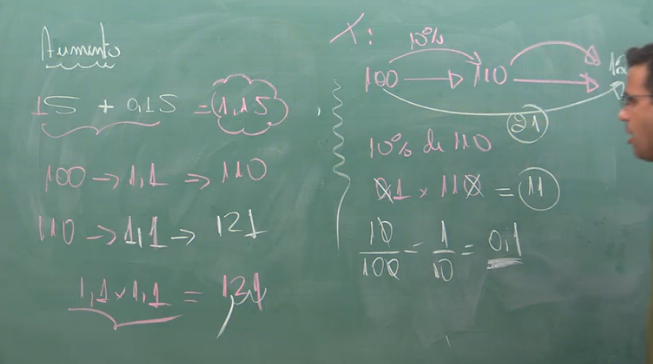 Aumento
1S + 0,1S = 1,1S
100 → 1,1 → 110
110 → 1,1 → 121
1,1 × 1,1 = 1,21
X:
10%
100 → 110 →
21
10% de 110
0,1 × 110 = 11
10/100 = 1/10 = 0,1